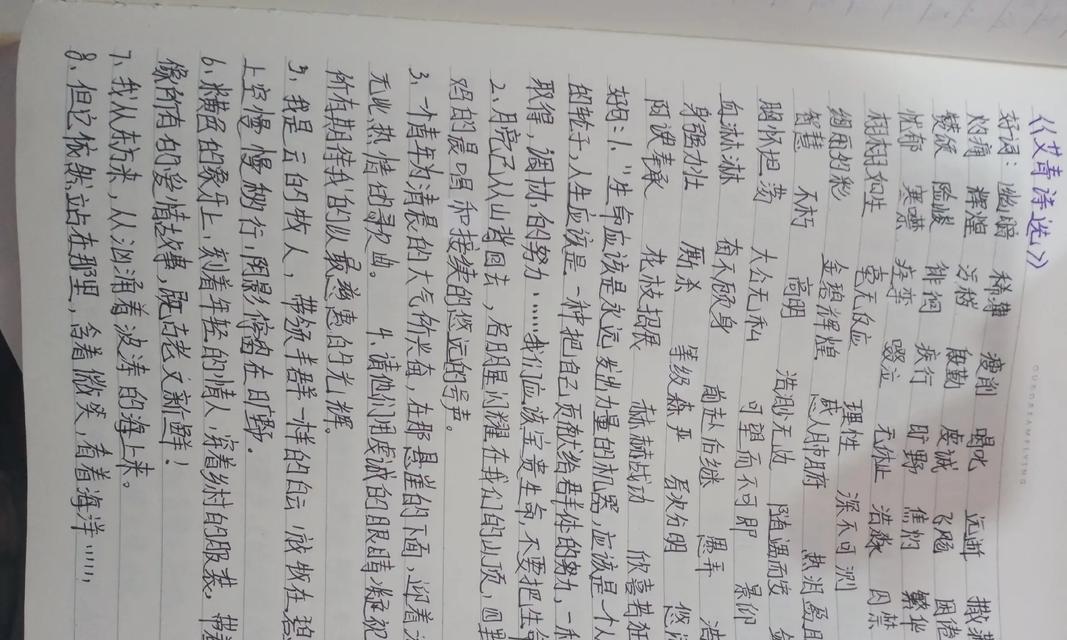 《艾青诗选》
好词：幽暗 稀薄 瘦削 喝叱 远逝
灼痛 辉煌 污秽 殷勤 虔诚 飞飏 困倦
矮小 险峻 徘徊 疾行 旷野 焦灼 繁华
忧郁 寒噤 啜泣 无休止 浩数 囚禁
栩栩如生 毫无反应 理性 深不可测
绚丽多彩 金碧辉煌 感人肺腑 热泪盈眶
智慧 不朽 高明 浩渺无边 随遇而安
胸怀坦荡 大公无私 可望而不可即 景仰
血淋淋 奋不顾身 前赴后继 愚弄
身强力壮 厮杀 等级森严 层次分明
阿谀奉承 花枝招展 赫赫战功 欣喜若狂
好句：1、"生命应该是永远发出力量的机器，应该是一个
的轮子，人生应该是一种把自己贡献给群体的努力，一种
取得，调协的努力……我们应该宝贵生命，不要把生命
2、月亮已从山背回去，启明星闪耀在我们的山顶，四野
鸡的晨唱和接续的悠远的号声。
3、一个青年为清晨的大气所兴奋，在那悬崖的下面，迎着
无比热情的歌曲。 4、请他们用虔诚的眼睛凝视
所有期待我的以最慈惠的光辉。
5、我是云的牧人，带领羊群一样的白云，放牧在碧
上空慢慢移行，阴影停留在旷野。
6、米黄色的象牙上，刻着年轻的情人，穿着乡村的服装，带着
像所有的爱情故事，既古老又新鲜！
7、我从东方来，从汹涌着波涛的海上来。
8、但它依然站在那里，含着微笑，看着海洋……
OURDREAMFLYING